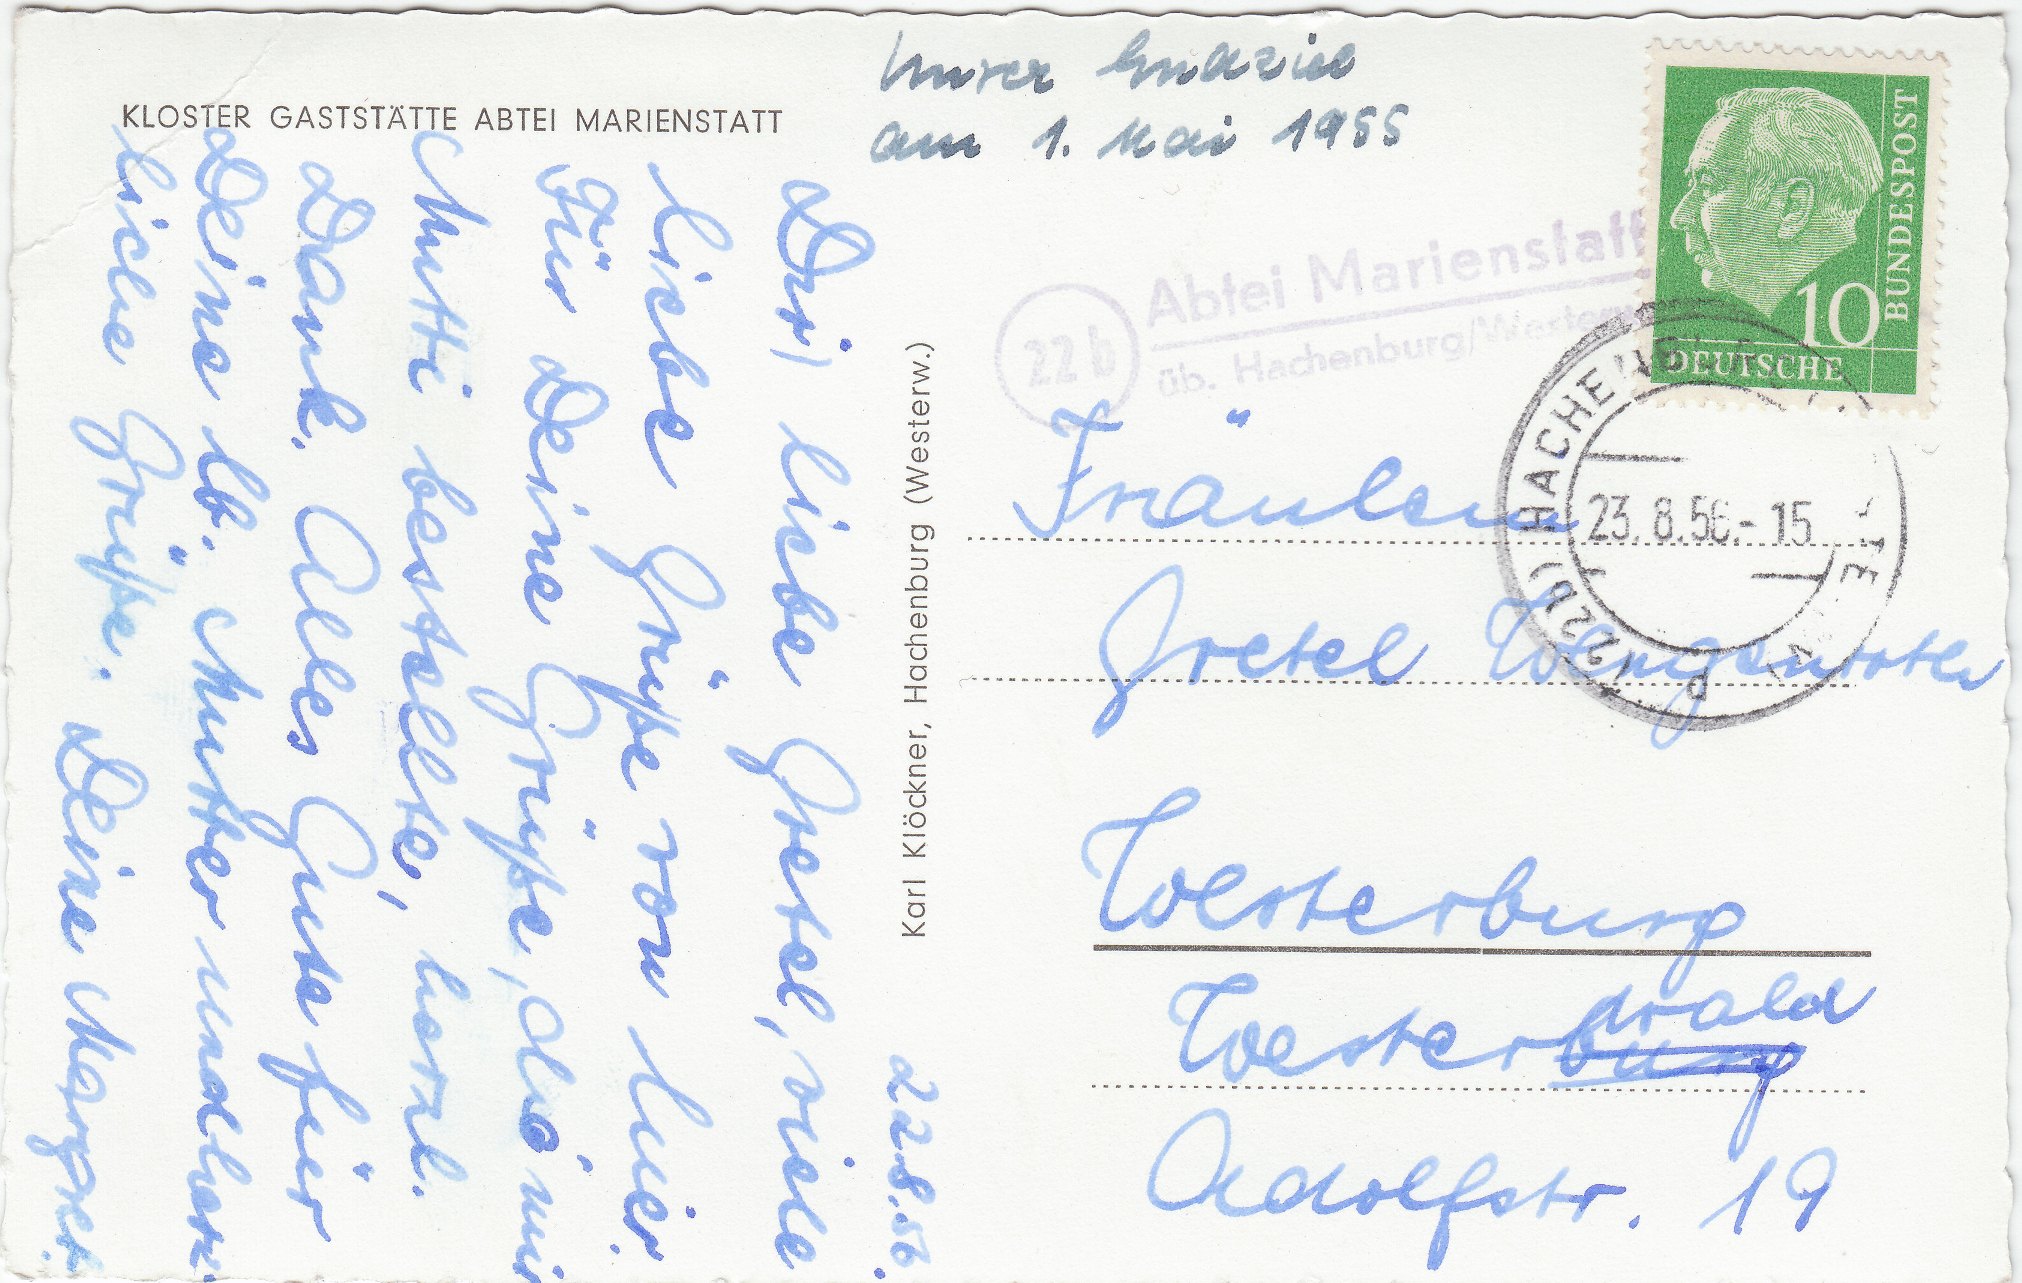 KLOSTER GASTSTÄTTE ABTEI MARIENSTATT
Unser Endziel
am 1. Mai 1955
22.8.56
Dir, liebe Gretel, viele
liebe Grüße von hier
Für Deine Grüße, die mir
Mutti bestellte, herzl.
Dank. Alles Gute für
Deine lb. Mutter und herz-
liche Grüße. Deine Margret
Karl Klöckner, Hachenburg (Westerw.)
22b
Abtei Marienstatt
üb. Hachenburg/Westerw
DEUTSCHE
BUNDESPOST
10
(22b) HACHENBURG
23.8.56.-15
Fräulein
Gretel Wengenroth
Westerburg
Westerburg wald
Adolfstr. 19